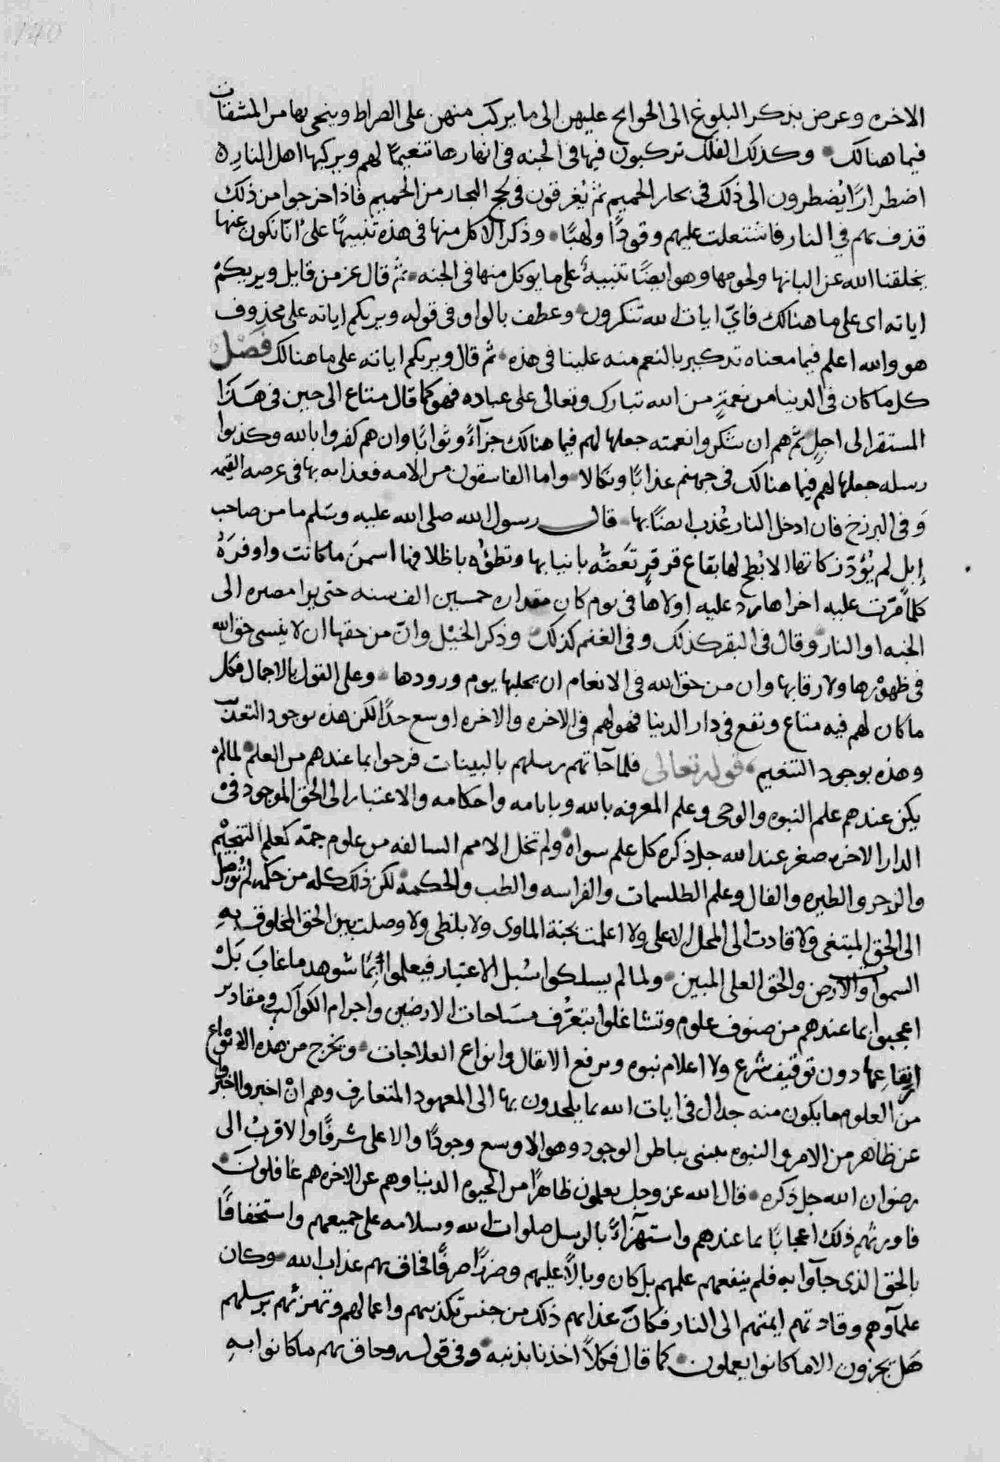 140
الاخره وعرض بذكر البلوغ الى الحوايج عليهن الى ما يركب منهن على الصراط وينجى بها من المشقات
فيما هنالك وكذلك الفلك تركبون فيها فى الجنه فى انهارها تنعيما لهم ويركبها اهل النار
اضطرارًا يُضطرون الى ذلك فى بحار الحميم ثم يُغرقون فى لجج البحار من الحميم فاذا خرجوا من ذلك
قذف بهم فى النار فاشتعلت عليهم وقودًا ولهبًا وذكر الاكل منها فى هذه تنبيهًا على انا نكون عنها
بخلقنا الله عن البانها ولحومها وهو ايضًا تنبيهٌ على ما يوكل منها فى الجنه ثم قال عز من قايل ويريكم
اياته اى على ما هنالك فاىّ ايات الله تنكرون وعطف بالواو فى قوله ويريكم اياته على محذوف
هو والله اعلم فيما معناه تذكير بالنعم منه علينا فى هذه ثم قال ويريكم اياته على ما هنالك فصل
كل ما كان فى الدنيا من نعمةٍ من الله تبارك وتعالى على عباده فهو كما قال متاع الى حين فى هَذا
المستقر الى اجلٍ ثم هم ان شكروا نعمته جعلها لهم فيما هنالك جزآءً وثوابًا وان هم كفروا بالله وكذبوا
رسله جعلها لهم فيما هنالك فى جهنم عذابًا ونكالا واما الفاسقون من الامه فعذابه بها فى عرصه القيمه
وَفى البرزخ فان ادخل النار عُذب ايضًا بها قال رسول الله صلى الله عليه وسلم ما من صاحب
إبل لم يُؤدّ زكاتها الا بُطح لها بقاع قرقرٍ تعَضّه بانيابها وتطئُه باظلافها اسمنَ ما كانت واوفرَهُ
كلما مرّت عليه اخراها رد عليه اولاها فى يوم كان مقداره خمسين الف سنه حتى يرا مصيره الى
الجنه او النار وقال فى البقر كذلك وفى الغنم كذلك وذكر الخيْل وانّ من حقها ان لا ينسى حق الله
فى ظهوْرها ولا رقابها وان من حق الله فى الانعام ان يحلبها يوم ورودها وعلى القول بالاجمال فكل
ما كان لهم فيه متاع ونفع فى دار الدنيا فهو لهم فى الاخره والاخره اوسع جدًا لكن هذه بوجود التعب
وهذه بوجود التنعيم قوله تعالى فلما جآتهم رسلهم بالبينات فرحوا بما عندهم من العلم لما لم
يكن عندهم علم النبوه والوحى وعلم المعرفه بالله وبايامه واحكامه والاعتبار الى الحق الموجود فى
الدار الاخره صغر عند الله جل ذكره كل علم سواه ولم تخل الامم السالفه من علوم جمّه كعلم التنجيْم
والزجر والطيره والفال وعلم الطلسمات والفراسه والطب والحكمه لكن ذلك كله من حكمه لم تُوصل
الى الحق المبتغى ولا قادت الى المحل الاعلى ولا اعلمت بجنة الماوى ولا بلظى ولا وصلت بين الحق المخلوق به
السموات والارض والحق العلى المبين ولما لم يسلكوا سُبل الاعتبار فيعلموا بما شوهد ما غابَ بَلْ
اعجبوا بما عندهم من صنوف علوم وتشاغلوا بتعرُّف مسَاحات الارضين واجرام الكواكب ومقادير
ارتفاعها دون توقيف شرع ولا اعلام نبوه وبرفع الاثقال وانواع العلاجات ويخرج من هذه الانواع
من العلوم ما يكون منه جدال فى ايات الله بما يلحدون بها الى المعهود المتعارف وهم انْ اخبروا اخبروا
عن ظاهر من الامر والنبوه تنبى بباطن الوجود وهو الاوسع وجودًا والاعلى شرفًا والاقربْ الى
رضوان الله جل ذكره قال الله عز وجل يعلمون ظاهرًا من الحيوه الدنيا وهم عن الاخره هم غافلون
فاورثهم ذلك اعجابًا بما عندهم واستهزآءً بالرسل صلوات الله وسلامه على جميعهم واستخفافًا
بالحق الذى جآوا به فلم ينفعهم علمهم بل كان وبالاً عليهم وضرًا صرفًا فحاق بهم عذاب الله وكان
علمآوهم وقادتهم ايمتهم الى النار فكان عذابهم ذلك من جنس تكذيبهم واعمالهم وتهزئهم برسلهم
هَل يجزون الا ما كانوا يعملون كما قال فكلاً اخذنا بذنبه وفى قوله وحاق بهم ما كانوا بهِ